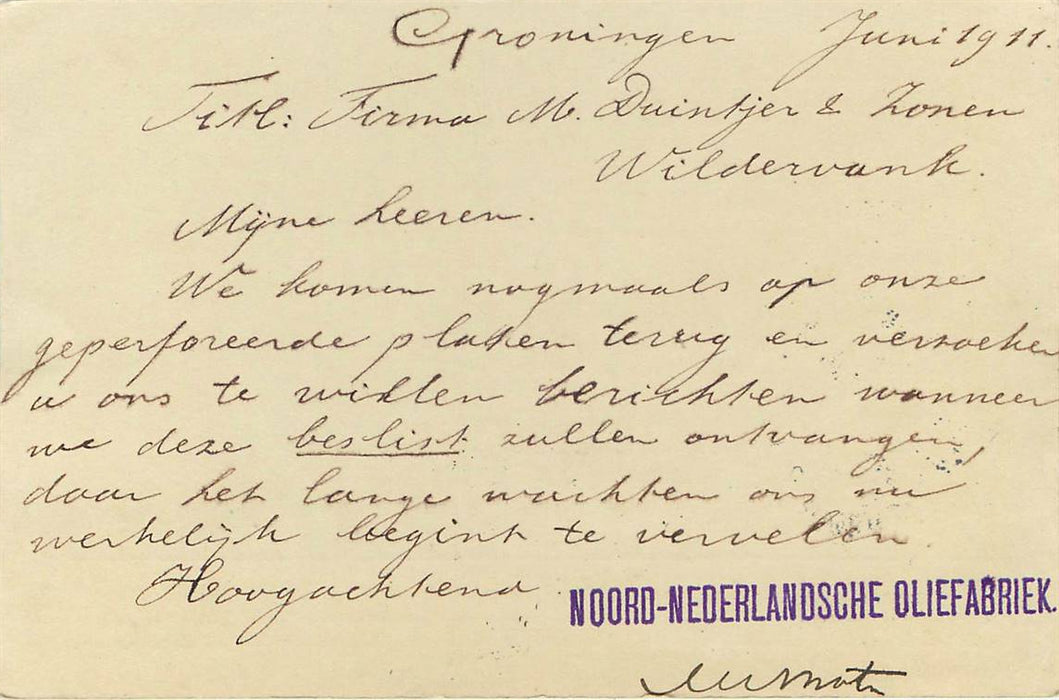 Groningen Juni 1911.
Titl: Firma M. Duintjer & Zonen
Wildervank.
Mijne heeren.
We komen nogmaals op onze
geperforeerde platen terug en verzoeken
u ons te willen berichten wanneer
we deze beslist zullen ontvangen,
daar het lange wachten ons nu
werkelijk begint te vervelen.
Hoogachtend
NOORD-NEDERLANDSCHE OLIEFABRIEK.